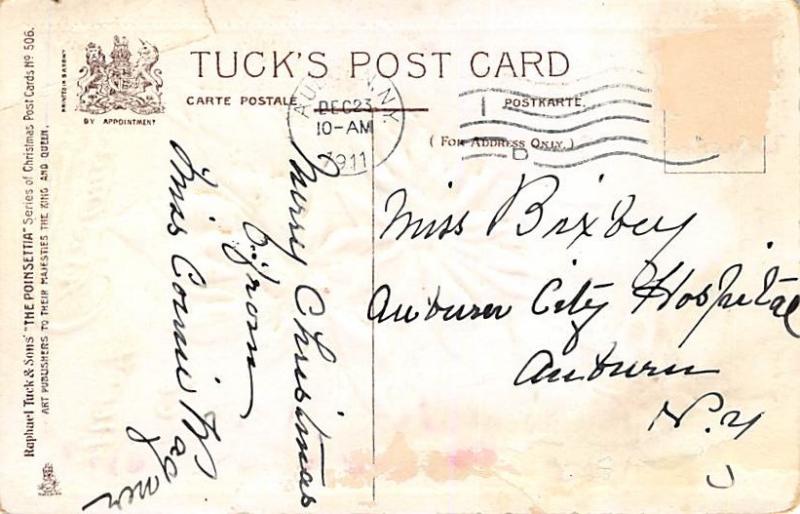 TUCK'S POST CARD
CARTE POSTALE
POSTKARTE.
(FOR ADDRESS ONLY.)
BY APPOINTMENT
PRINTED IN SAXONY
Raphael Tuck & Sons' "THE POINSETTIA" Series of Christmas Post Cards Nº 506.
ART PUBLISHERS TO THEIR MAJESTIES THE KING AND QUEEN.
AU N.Y.
DEC 23
10-AM
1911
Merry Christmas
From
Miss Connie Wagner
Miss Bixbey
Auburn City Hospital
Auburn
N.Y